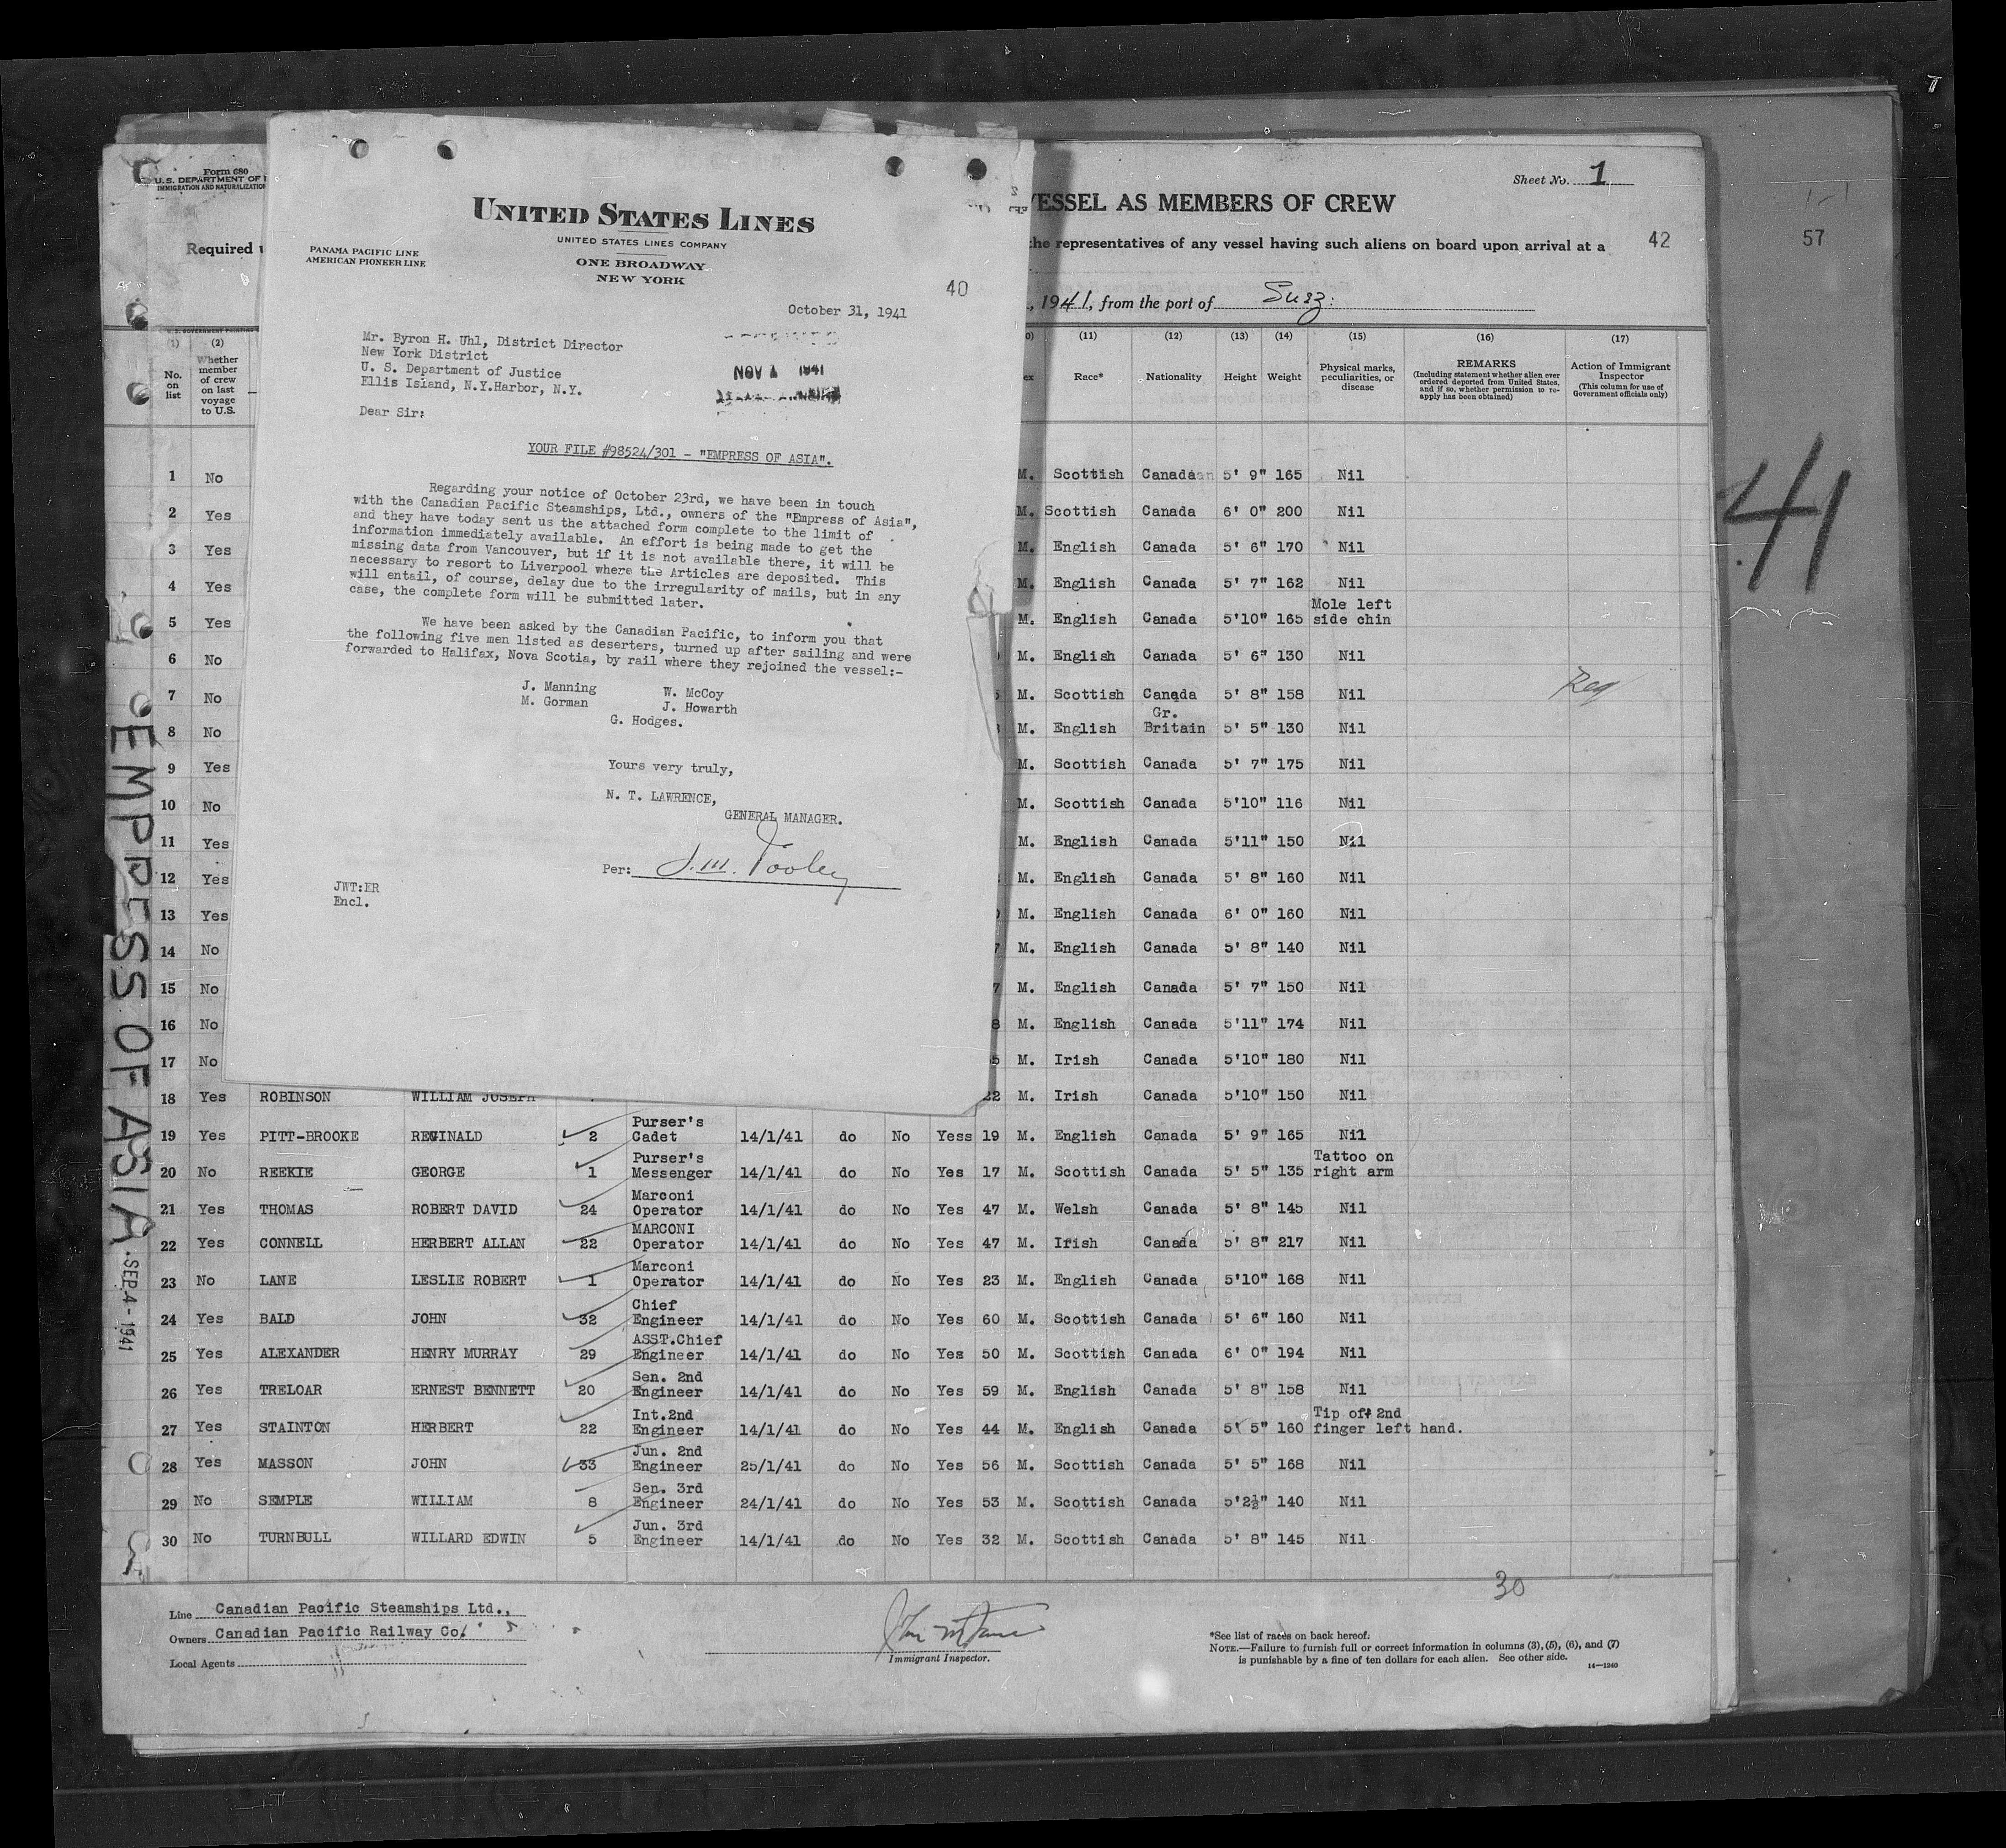 Form 680
U.S. DEPARTMENT OF
IMMIGRATION AND NATURALIZATION
Required
Sheet No. 1
VESSEL AS MEMBERS OF CREW
the representatives of any vessel having such aliens on board upon arrival at a
42
57
, 1941, from the port of Suez.
UNITED STATES LINES
UNITED STATES LINES COMPANY
PANAMA PACIFIC LINE
AMERICAN PIONEER LINE
ONE BROADWAY
NEW YORK
40
October 31, 1941
Mr. Byron H. Uhl, District Director
New York District
U. S. Department of Justice
Ellis Island, N.Y.Harbor, N.Y.
NOV 1 1941
Dear Sir:
YOUR FILE #98524/301 - "EMPRESS OF ASIA".
Regarding your notice of October 23rd, we have been in touch
with the Canadian Pacific Steamships, Ltd., owners of the "Empress of Asia",
and they have today sent us the attached form complete to the limit of
information immediately available. An effort is being made to get the
missing data from Vancouver, but if it is not available there, it will be
necessary to resort to Liverpool where the Articles are deposited. This
will entail, of course, delay due to the irregularity of mails, but in any
case, the complete form will be submitted later.
We have been asked by the Canadian Pacific, to inform you that
the following five men listed as deserters, turned up after sailing and were
forwarded to Halifax, Nova Scotia, by rail where they rejoined the vessel:-
J. Manning W. McCoy
M. Gorman J. Howarth
G. Hodges.
Yours very truly,
N. T. LAWRENCE,
GENERAL MANAGER.
Per: J.W. Tooley
JWT:ER
Encl.
(1) (2) (11) (12) (13) (14) (15) (16) (17)
No. on list
Whether member of crew on last voyage to U.S.
Race*
Nationality
Height
Weight
Physical marks, peculiarities, or disease
REMARKS
(Including statement whether alien ever ordered deported from United States, and if so, whether permission to re-apply has been obtained)
Action of Immigrant Inspector
(This column for use of Government officials only)
1 No M. Scottish Canadaan 5' 9" 165 Nil
2 Yes M. Scottish Canada 6' 0" 200 Nil
3 Yes M. English Canada 5' 6" 170 Nil
4 Yes M. English Canada 5' 7" 162 Nil
5 Yes M. English Canada 5'10" 165 Mole left side chin
6 No M. English Canada 5' 6" 130 Nil
7 No M. Scottish Canada 5' 8" 158 Nil
8 No M. English Gr. Britain 5' 5" 130 Nil
9 Yes M. Scottish Canada 5' 7" 175 Nil
10 No M. Scottish Canada 5'10" 116 Nil
11 Yes M. English Canada 5'11" 150 Nil
12 Yes M. English Canada 5' 8" 160 Nil
13 Yes M. English Canada 6' 0" 160 Nil
14 No M. English Canada 5' 8" 140 Nil
15 No M. English Canada 5' 7" 150 Nil
16 No M. English Canada 5'11" 174 Nil
17 No M. Irish Canada 5'10" 180 Nil
18 Yes ROBINSON WILLIAM JOSEPH 22 M. Irish Canada 5'10" 150 Nil
19 Yes PITT-BROOKE REGINALD 2 Purser's Cadet 14/1/41 do No Yess 19 M. English Canada 5' 9" 165 Nil
20 No REEKIE GEORGE 1 Purser's Messenger 14/1/41 do No Yes 17 M. Scottish Canada 5' 5" 135 Tattoo on right arm
21 Yes THOMAS ROBERT DAVID 24 Marconi Operator 14/1/41 do No Yes 47 M. Welsh Canada 5' 8" 145 Nil
22 Yes CONNELL HERBERT ALLAN 22 MARCONI Operator 14/1/41 do No Yes 47 M. Irish Canada 5' 8" 217 Nil
23 No LANE LESLIE ROBERT 1 Marconi Operator 14/1/41 do No Yes 23 M. English Canada 5'10" 168 Nil
24 Yes BALD JOHN 32 Chief Engineer 14/1/41 do No Yes 60 M. Scottish Canada 5' 6" 160 Nil
25 Yes ALEXANDER HENRY MURRAY 29 ASST.Chief Engineer 14/1/41 do No Yes 50 M. Scottish Canada 6' 0" 194 Nil
26 Yes TRELOAR ERNEST BENNETT 20 Sen. 2nd Engineer 14/1/41 do No Yes 59 M. English Canada 5' 8" 158 Nil
27 Yes STAINTON HERBERT 22 Int.2nd Engineer 14/1/41 do No Yes 44 M. English Canada 5' 5" 160 Tip off 2nd finger left hand.
28 Yes MASSON JOHN 33 Jun. 2nd Engineer 25/1/41 do No Yes 56 M. Scottish Canada 5' 5" 168 Nil
29 No SEMPLE WILLIAM 8 Sen. 3rd Engineer 24/1/41 do No Yes 53 M. Scottish Canada 5'2½" 140 Nil
30 No TURNBULL WILLARD EDWIN 5 Jun. 3rd Engineer 14/1/41 do No Yes 32 M. Scottish Canada 5' 8" 145 Nil
41
EMPRESS OF ASIA. SEP. 4 - 1941
30
Line Canadian Pacific Steamships Ltd.,
Owners Canadian Pacific Railway Co.
Local Agents
Immigrant Inspector.
*See list of races on back hereof.
NOTE.—Failure to furnish full or correct information in columns (3), (5), (6), and (7)
is punishable by a fine of ten dollars for each alien. See other side.
14—1240